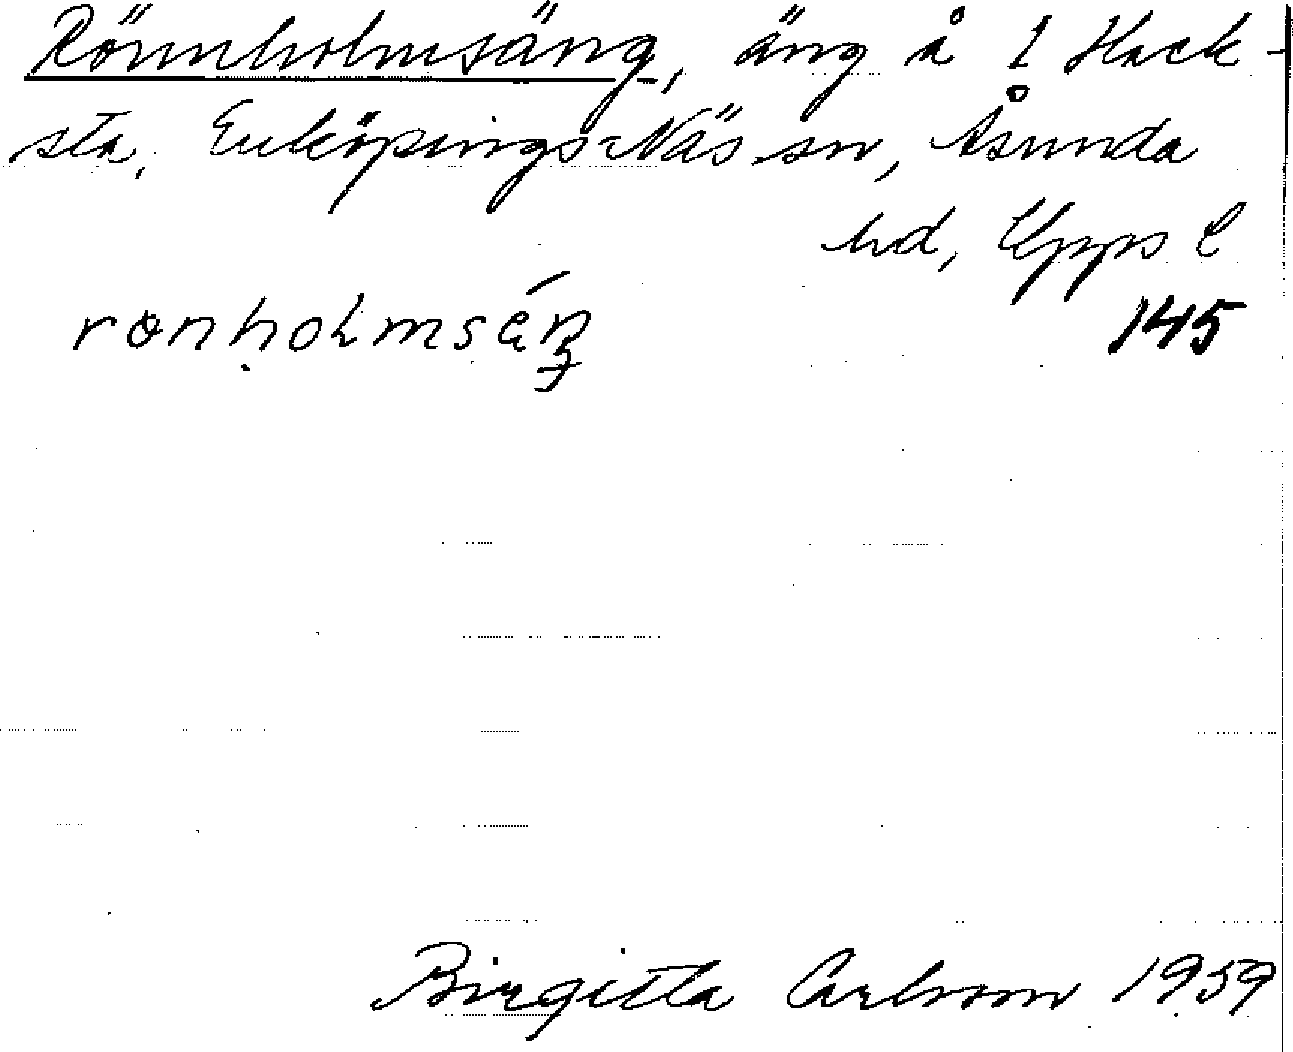 Rönnholmsäng, äng å 1 Hack-
sta, Enköpings-Näs sn, Åsunda
hd, Upps l
rönholmsäŋ
145
Birgitta Carlsson 1959